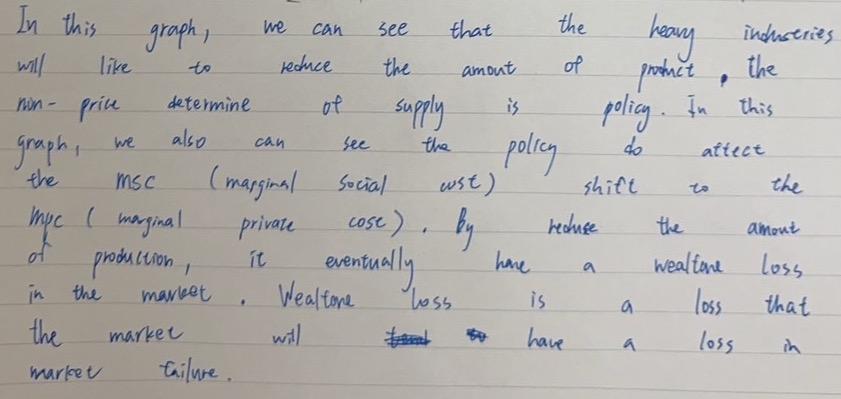 In this graph, we can see that the heavy industries
will like to reduce the amout of product, the
non-price determine of supply is policy. In this
graph, we also can see the policy do affect
the MSC (marginal social cost) shift to the
MPC (marginal private cost). By reduse the amout
of production, it eventually have a wealfare loss
in the market. Wealfare loss is a loss that
the market will have a loss in
market failure.